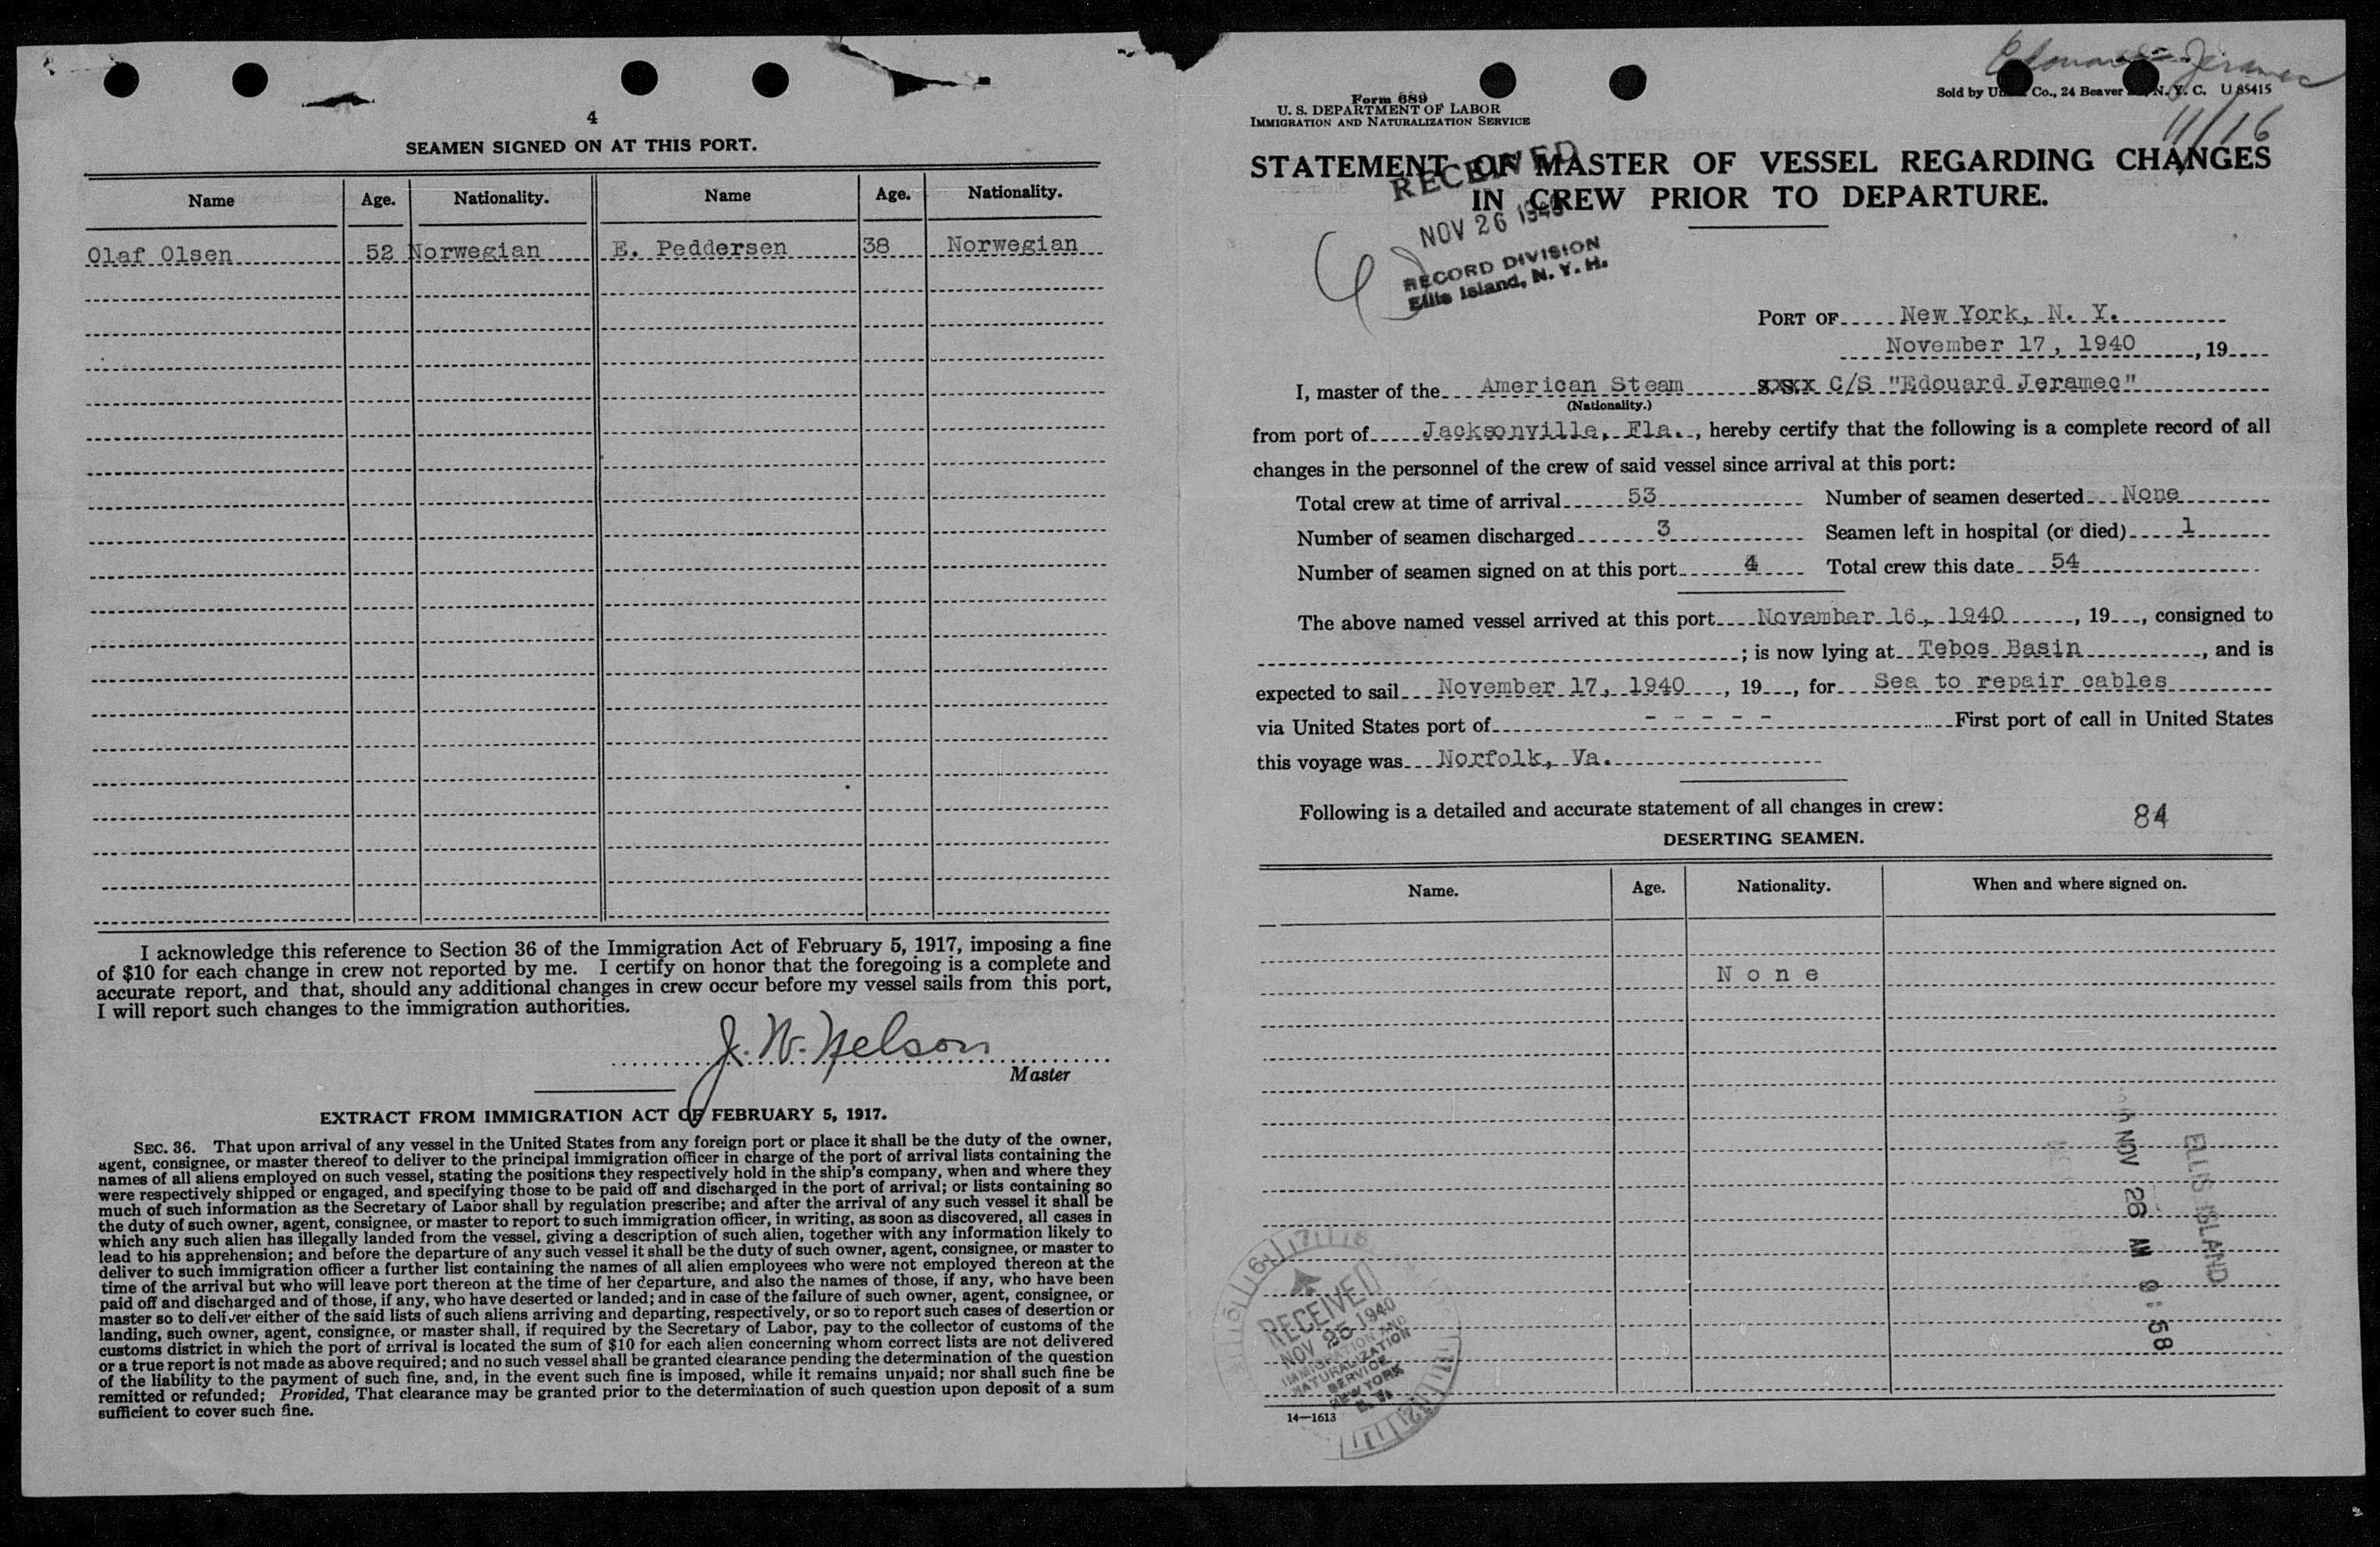 4
SEAMEN SIGNED ON AT THIS PORT.
Name Age. Nationality. Name Age. Nationality.
Olaf Olsen 52 Norwegian E. Peddersen 38 Norwegian
I acknowledge this reference to Section 36 of the Immigration Act of February 5, 1917, imposing a fine
of $10 for each change in crew not reported by me. I certify on honor that the foregoing is a complete and
accurate report, and that, should any additional changes in crew occur before my vessel sails from this port,
I will report such changes to the immigration authorities.
J. W. Nelson
Master
EXTRACT FROM IMMIGRATION ACT OF FEBRUARY 5, 1917.
SEC. 36. That upon arrival of any vessel in the United States from any foreign port or place it shall be the duty of the owner,
agent, consignee, or master thereof to deliver to the principal immigration officer in charge of the port of arrival lists containing the
names of all aliens employed on such vessel, stating the positions they respectively hold in the ship's company, when and where they
were respectively shipped or engaged, and specifying those to be paid off and discharged in the port of arrival; or lists containing so
much of such information as the Secretary of Labor shall by regulation prescribe; and after the arrival of any such vessel it shall be
the duty of such owner, agent, consignee, or master to report to such immigration officer, in writing, as soon as discovered, all cases in
which any such alien has illegally landed from the vessel, giving a description of such alien, together with any information likely to
lead to his apprehension; and before the departure of any such vessel it shall be the duty of such owner, agent, consignee, or master to
deliver to such immigration officer a further list containing the names of all alien employees who were not employed thereon at the
time of the arrival but who will leave port thereon at the time of her departure, and also the names of those, if any, who have been
paid off and discharged and of those, if any, who have deserted or landed; and in case of the failure of such owner, agent, consignee, or
master so to deliver either of the said lists of such aliens arriving and departing, respectively, or so to report such cases of desertion or
landing, such owner, agent, consignee, or master shall, if required by the Secretary of Labor, pay to the collector of customs of the
customs district in which the port of arrival is located the sum of $10 for each alien concerning whom correct lists are not delivered
or a true report is not made as above required; and no such vessel shall be granted clearance pending the determination of the question
of the liability to the payment of such fine, and, in the event such fine is imposed, while it remains unpaid; nor shall such fine be
remitted or refunded; Provided, That clearance may be granted prior to the determination of such question upon deposit of a sum
sufficient to cover such fine.
Jeramec
11/16
Form 689
U. S. DEPARTMENT OF LABOR
IMMIGRATION AND NATURALIZATION SERVICE
Sold by Co., 24 Beaver N. Y. C. U 85415
STATEMENT OF MASTER OF VESSEL REGARDING CHANGES
IN CREW PRIOR TO DEPARTURE.
RECEIVED
NOV 26 1940
RECORD DIVISION
Ellis Island, N. Y. H.
PORT OF New York, N. Y.
November 17, 1940, 19
I, master of the American Steam S.S. C/S "Edouard Jeramec"
(Nationality.)
from port of Jacksonville, Fla., hereby certify that the following is a complete record of all
changes in the personnel of the crew of said vessel since arrival at this port:
Total crew at time of arrival 53 Number of seamen deserted None
Number of seamen discharged 3 Seamen left in hospital (or died) 1
Number of seamen signed on at this port 4 Total crew this date 54
The above named vessel arrived at this port November 16, 1940, 19, consigned to
; is now lying at Tebos Basin, and is
expected to sail November 17, 1940, 19, for Sea to repair cables
via United States port of - - - - - First port of call in United States
this voyage was Norfolk, Va.
Following is a detailed and accurate statement of all changes in crew:
84
DESERTING SEAMEN.
Name. Age. Nationality. When and where signed on.
None
ELLIS ISLAND
NOV 26 AM 9:58
RECEIVED
NOV 25 1940
IMMIGRATION AND
NATURALIZATION
SERVICE
NEW YORK
14—1613